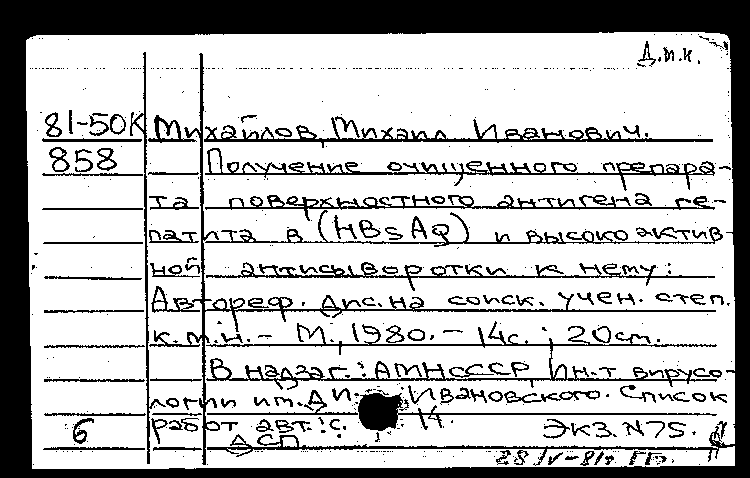 Д.т.н.
81-50К Михайлов, Михаил Иванович.
858 Получение очищенного препара-
та поверхностного антигена ге-
патита в (HBsAg) и высокоактив-
ной антисыворотки к нему:
Автореф. Дис. на соиск. учен. степ.
к.м.н. - М., 1980. - 14с.; 20см.
В надзаг.: АМНСССР, Ин-т вирусо-
логии им. Ди. Ивановского. Список
6 работ авт.: с. 14.
ДСП. Экз. N75.
28/IV-81г ГР.